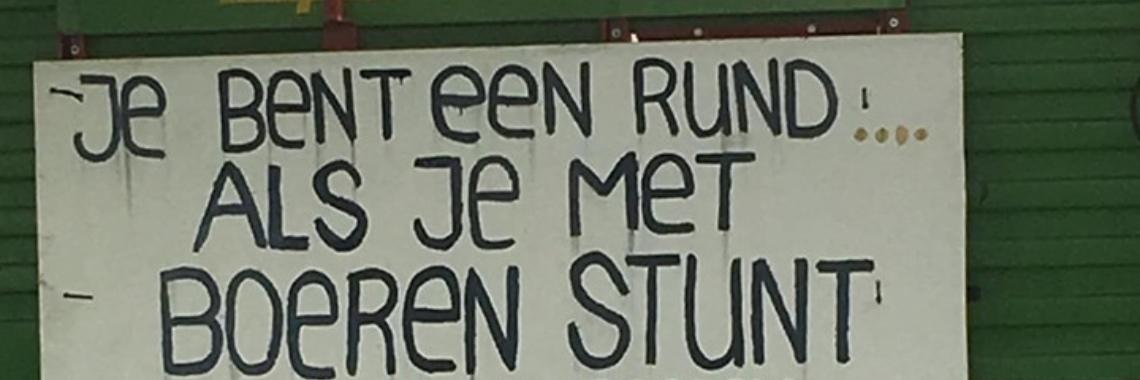 Je BeNT eeN RUND....
ALS Je MeT
BOeReN STUNT